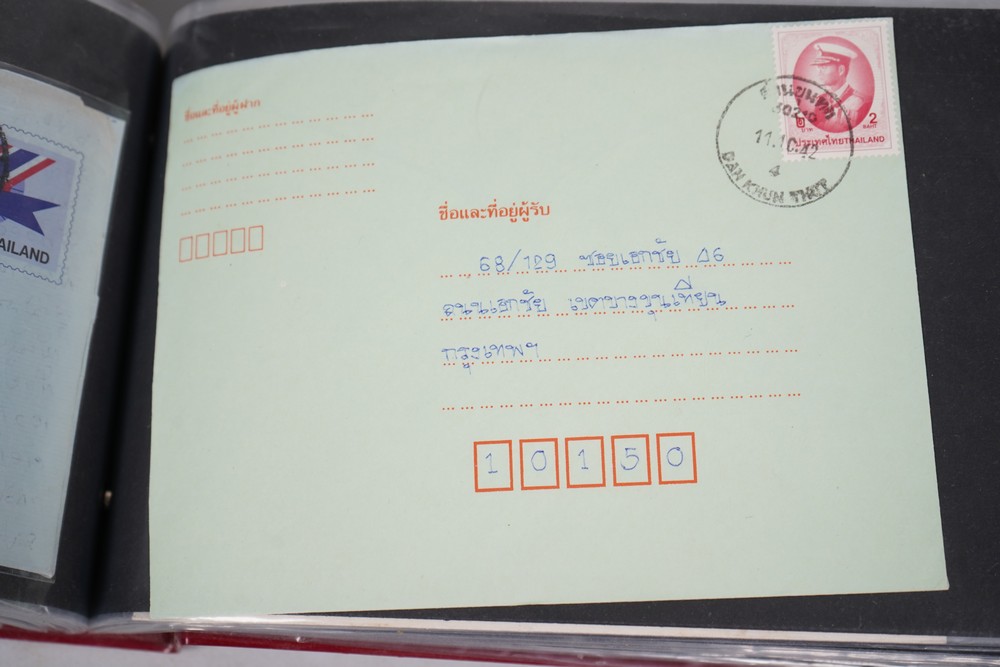 AILAND
ชื่อและที่อยู่ผู้ฝาก
๒ บาท
2 BAHT
ประเทศไทยTHAILAND
ด่านขุนทด
30210
11.10.42
4
DAN KHUN THOT
ชื่อและที่อยู่ผู้รับ
68/129 ซอยเอกชัย 46
ถนนเอกชัย เขตบางขุนเทียน
กรุงเทพฯ
10150